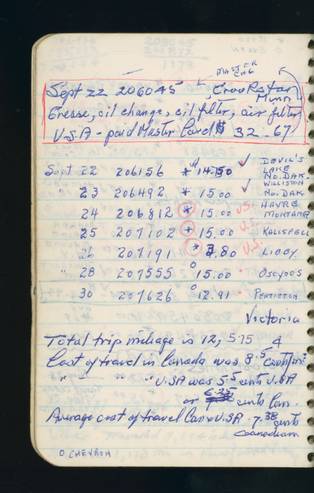 MASTER CHG
Sept 22 206045 Crookston Minn
Grease, oil change, oil filter, air filter
U.S.A - paid Master Card $ 32-67
Sept 22 206156 * 14.50 DEVIL'S LAKE No. DAK.
" 23 206492 * 15.00 WILLISTON No. DAK
24 206812 * 15.00 U.S. HAVRE MONTANA
" 25 207102 * 15.00 U.S. KALISPELL
" 26 207191 * 3.80 U.S. LIBBY
" 28 207555 ° 15.00 OSOYOOS
" 30 207626 ° 12.91 PENTICTON
Victoria
Total trip mileage is 12,575
Cost of travel in Canada was 8.5 cents
" " U.S.A was 5.5 cents U.S.A
or cents Can.
Average cost of travel Can & U.S.A - 7.38 cents
Canadian
O CHEVRON